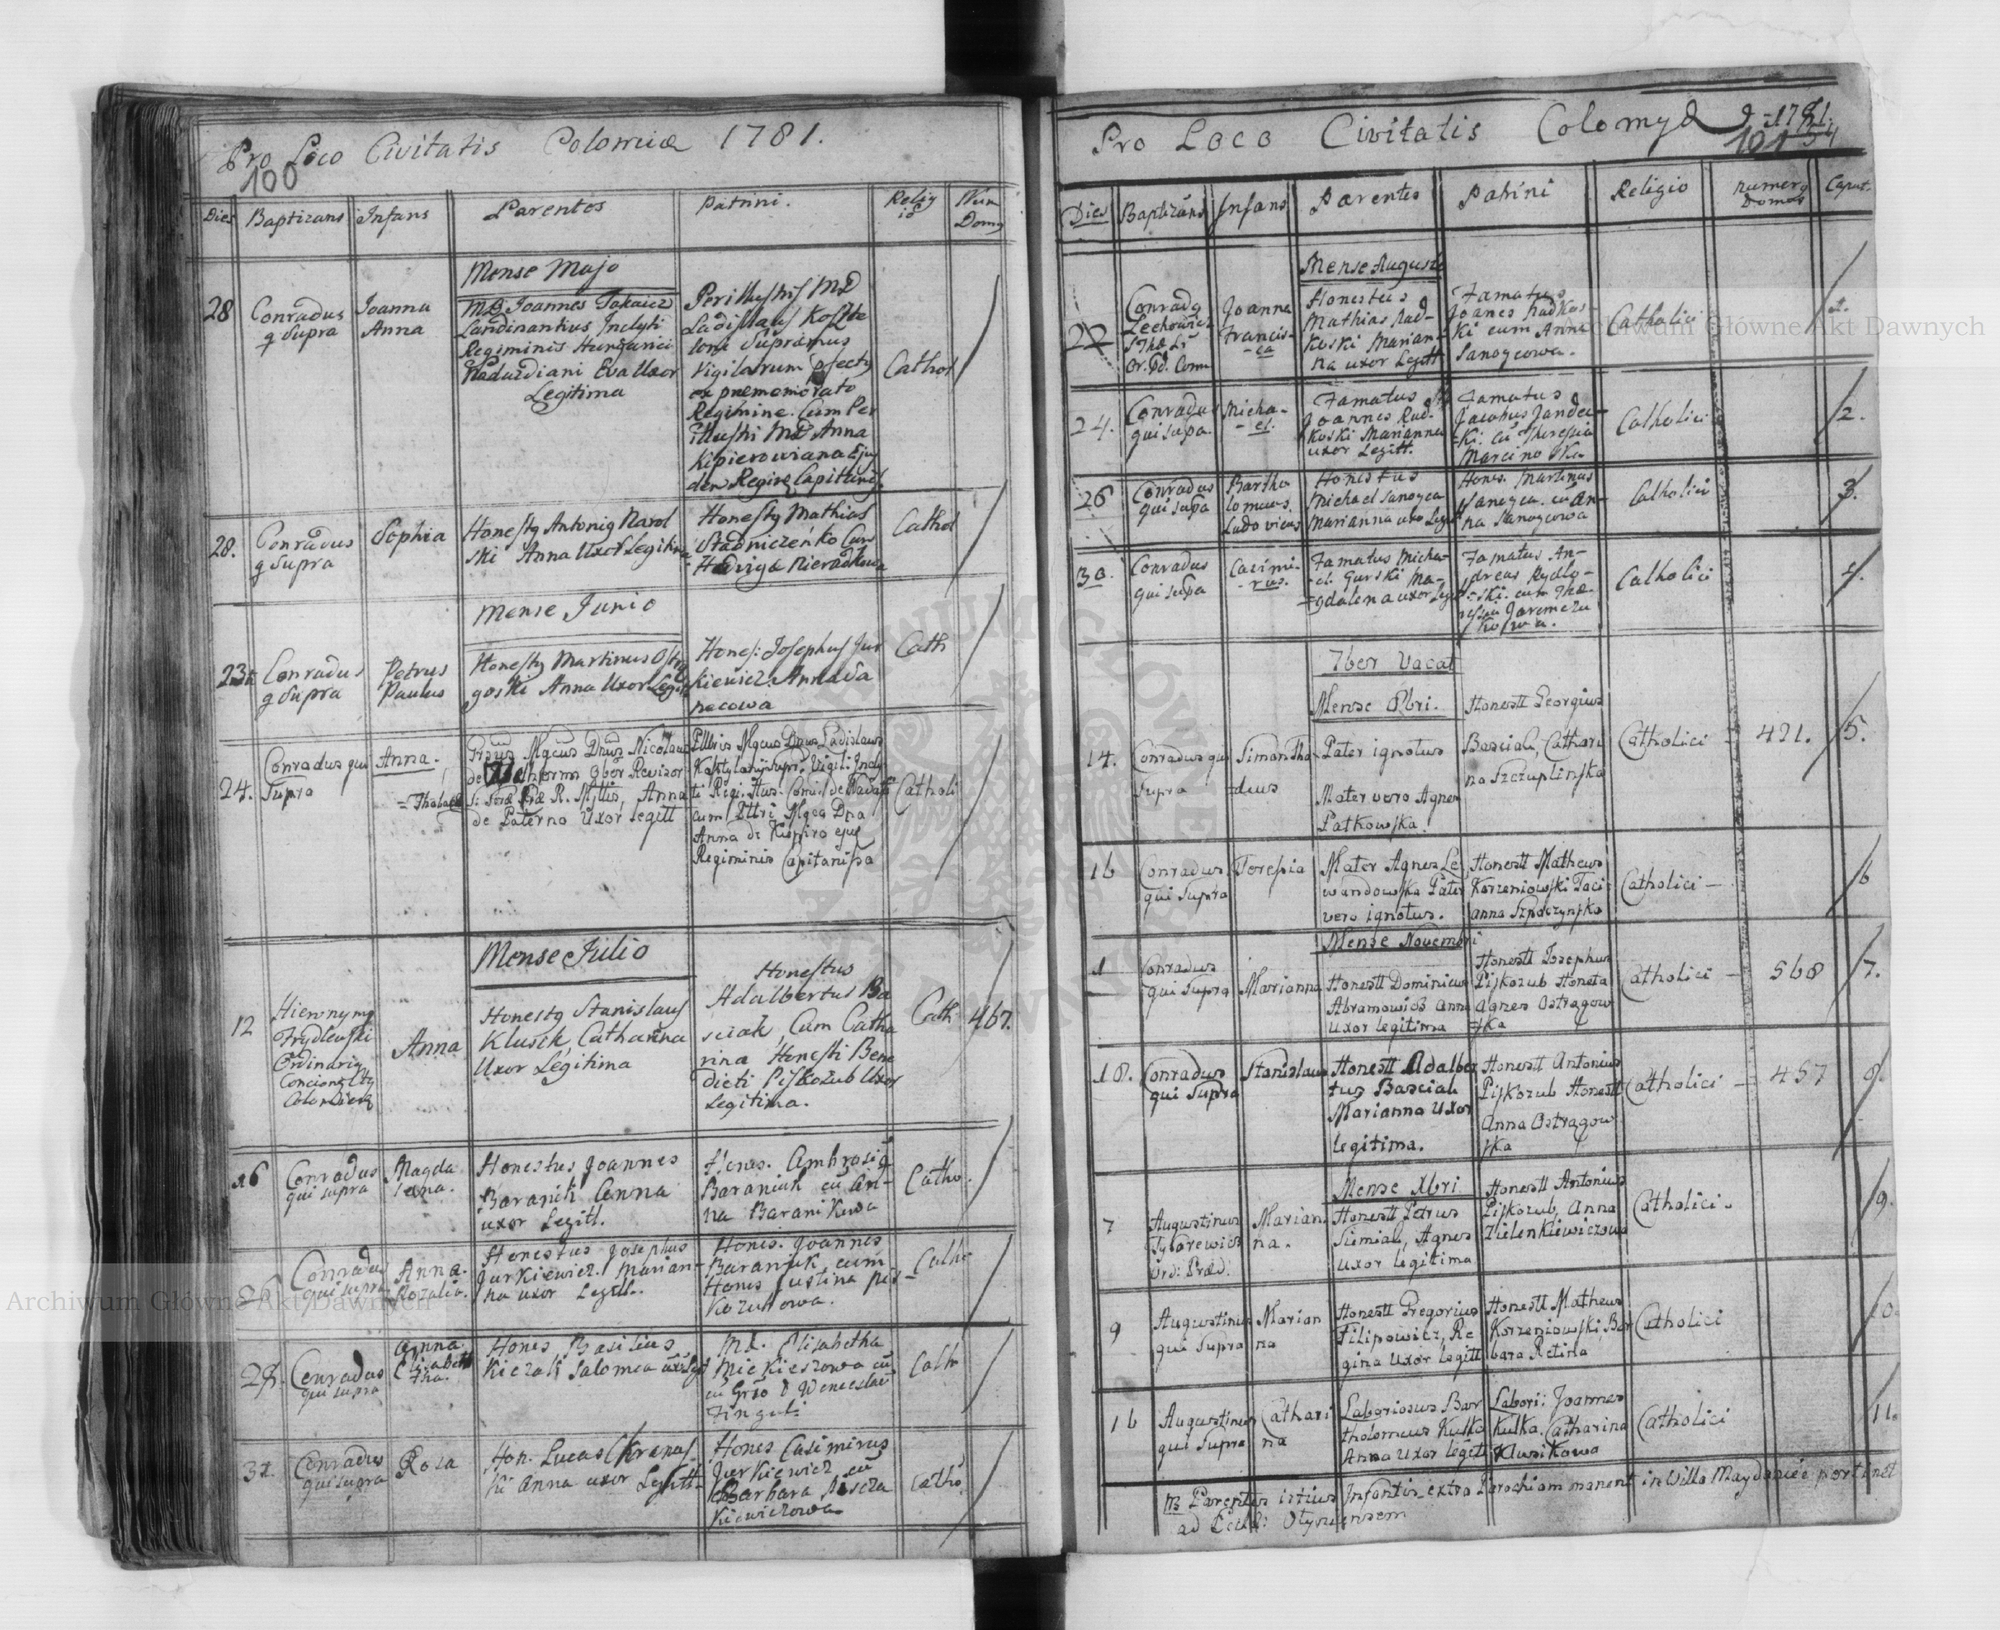 Pro Loco Civitatis Colomiæ 1781.
100
Dies Baptizans Infans Parentes Patrini. Religio Num Domq
Mense Majo
28
Conradus
q Supra
Joanna
Anna
MD Joannes Takaicz
Inclyti
Regiminis Hungarici
Nadazdiani Eva Uxor
Legitima
Perillustris MD
Ladislaus
Supremus
Vigiliarum
ex prememorato
Regimine. Cum Per
illustri MD Anna
Kipierowiana Ejus
dem Regim Capitanis
Cathol
28.
Conradus
q Supra
Sophia
Honestq Antoniq Narol
ski Anna Uxor Legitima
Honestq Mathias
Stadniczeńko Cum
Hedvige
Cathol
Mense Junio
23
Conradus
q Supra
Petrus
Paulus
Honestq Martinus Ostro
goski Anna Uxor Legit
Hones: Josephus Jur
kiewicz. Anna
necowa
Cath
24.
Conradus qui
Supra
Anna.
Mgcus Dnus Nicolaus
de
R. Mttis, Anna
de Paterno Uxor Legitt
Illtris Mgcus Dnus Ladislaus
cum Illtri Mgca Dna
Anna di Kipiro ejus
Regiminis Capitanissa
Catholi
Mense Julio
12
Hieronymq
Frydlewski
Ordinariq
Anna
Honestq Stanislaus
Klusik, Catharina
Uxor Legitima
Honestus
Adalbertus Ba
sciak, Cum Catha
rina, Honesti Bene
dicti Piskozub Uxor
Legitima.
Cath
467.
26
Conradus
qui supra
Magda
lena.
Honestus Joannes
Baranik Anna
uxor Legitt.
Hones. Ambrosiq
Baraniuk cu An-
na Baranikowa
Catho.
26
Conradus
qui supra
Anna.
Rozalia.
Honestus Josephus
Jurkiewicz. Marian-
na uxor Legitt.
Hones. Joannes
Baraniuk cum
Hones Justina pis-
kozubowa.
Catho
28.
Conradus
qui supra
Anna
Elisabeth
tha.
Hones Basilius
Kiczak Salomea
MD. Elisabetha
Mickieszowa cu
Catho
31.
Conradus
qui supra
Roza
Hon. Lucas
ki Anna uxor Legitt-
Hones Casimirus
Jurkiewicz cu
Barbara
kiewiczowa.
Catho.
Pro Loco Civitatis Colomyæ 1781.
101
Dies Baptizans Infans Parentes Patrini Religio numerq Domos Caput.
Mense Augusto
22
Conradq
Lechowicz
Joanna
Francis-
-ca
Honestus
Mathias Rad-
koski Marian-
na uxor Legitt
Famatus
Joanes Radkos
ki cum Anna
Sanoycowa.
Catholici
1.
24.
Conradus
qui supa.
Micha-
-el.
Famatus
Joannes Rad-
koski Marianna
uxor Legitt.
Famatus
Jacobus Jander-
ki. cu Theresia
Marcinowska
Catholici
2.
26
Conradus
qui supa
Bartho
lomaeus.
Ludovicus
Honestus
Michael Sanoyca
Marianna uxo Legit
Hones. Martinus
Sanoyca. cu An-
na Sanoycowa
Catholici
3.
30.
Conradus
qui supa
Casimi-
-rus.
Famatus Micha-
el. Gurski Ma-
gdalena uxor Legit
Famatus An-
dreas Rydlo-
ski. cum The-
resia Jaremczu
kowa.
Catholici
4.
7ber Vacat
Mense 8bri.
14.
Conradus qui
Supra
Simon Tha-
deus
Pater ignotus
Mater vero Agnes
Patkowska.
Honestt Georgius
Basciak, Cathari
na Szczuplinska
Catholici
421.
5.
16
Conradus
qui Supra
Teresia
Mater Agnes Le
wandowska Pater
vero ignotus.
Honestt Matheus
Korzeniowski Taci
anna
Catholici
6
Mense Novembri
1
Conradus
qui Supra
Marianna
Honestt Dominicus
Abramowicz Anna
Uxor legitima
Honestt Josephus
Piskozub Honesta
Agnes Ostragow
ska
Catholici
568
7.
18.
Conradus
qui Supra
Stanislaus
Honestt Adalber
tus Basciak
Marianna Uxor
legitima.
Honestt Antonius
Piskozub Honestt
Anna Ostragow
ska
Catholici
457
8.
Mense Xbri
7
Augustinus
Ord: Præd:
Marian
na.
Honestt Petrus
Siemiak, Agnes
Uxor legitima
Honestt Antonius
Piskozub, Anna
Zielenkiewiczowa
Catholici.
9.
9
Augustinus
qui Supra
Marian
na
Honestt Gregorius
Filipowicz, Re
gina Uxor legitt
Honestt Matheus
Korzeniowski Bar
bara Retina
Catholici
10
16
Augustinus
qui Supra
Cathari
na
Laboriosus Bar
tholomeus Kulka
Anna Uxor legitt
Labori: Joannes
Kulka, Catharina
Klusikowa
Catholici
11.
NB Parentes istius Infantis extra Parochiam manent in Willa Maydanie pertinet
ad Eccl: Otyniensem
Archiwum Główne Akt Dawnych
Archiwum Główne Akt Dawnych
ARCHIWUM GŁÓWNE AKT DAWNYCH